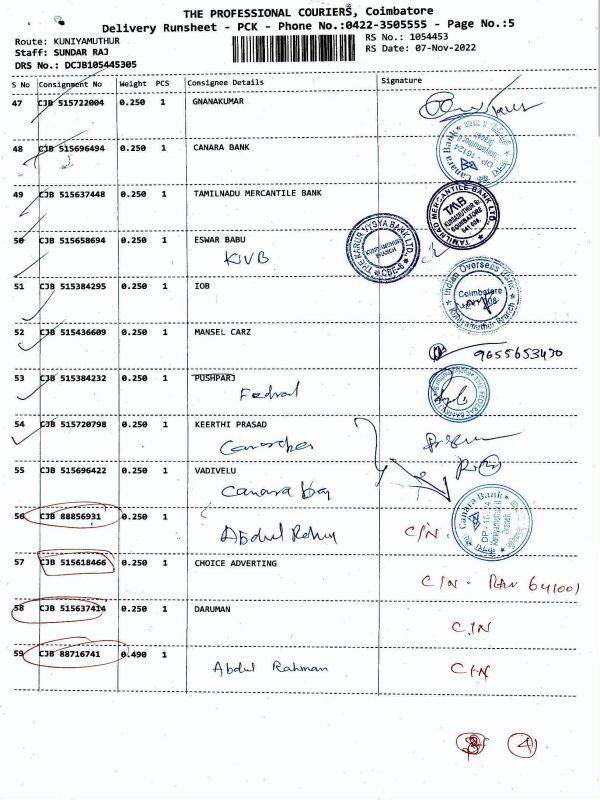 THE PROFESSIONAL COURIERS, Coimbatore
Delivery Runsheet - PCK - Phone No.:0422-3505555 - Page No.:5
Route: KUNIYAMUTHUR
Staff: SUNDAR RAJ
DRS No.: DCJB105445305
RS No.: 1054453
RS Date: 07-Nov-2022
S No Consignment No Weight PCS Consignee Details Signature
47 CJB 515722004 0.250 1 GNANAKUMAR
48 CJB 515696494 0.250 1 CANARA BANK
Canara Bank
DP - 16124
49 CJB 515637448 0.250 1 TAMILNADU MERCANTILE BANK
TAMILNAD MERCANTILE BANK LTD.
TMB
COIMBATORE
50 CJB 515658694 0.250 1 ESWAR BABU
KVB
THE KARUR VYSYA BANK LTD.
BRANCH
51 CJB 515384295 0.250 1 IOB
Indian Overseas Bank
Coimbatore
Kuniyamuthur Branch
52 CJB 515436609 0.250 1 MANSEL CARZ
9655653490
53 CJB 515384232 0.250 1 PUSHPARJ
Fedral
54 CJB 515720798 0.250 1 KEERTHI PRASAD
55 CJB 515696422 0.250 1 VADIVELU
Canara
Canara Bank
56 CJB 88856931 0.250 1
Abdul C/N.
57 CJB 515618466 0.250 1 CHOICE ADVERTING
C/N - PAN 641001
58 CJB 515637414 0.250 1 DARUMAN
C/N
59 CJB 88716741 0.490 1
Abdul Rahman C/N
4